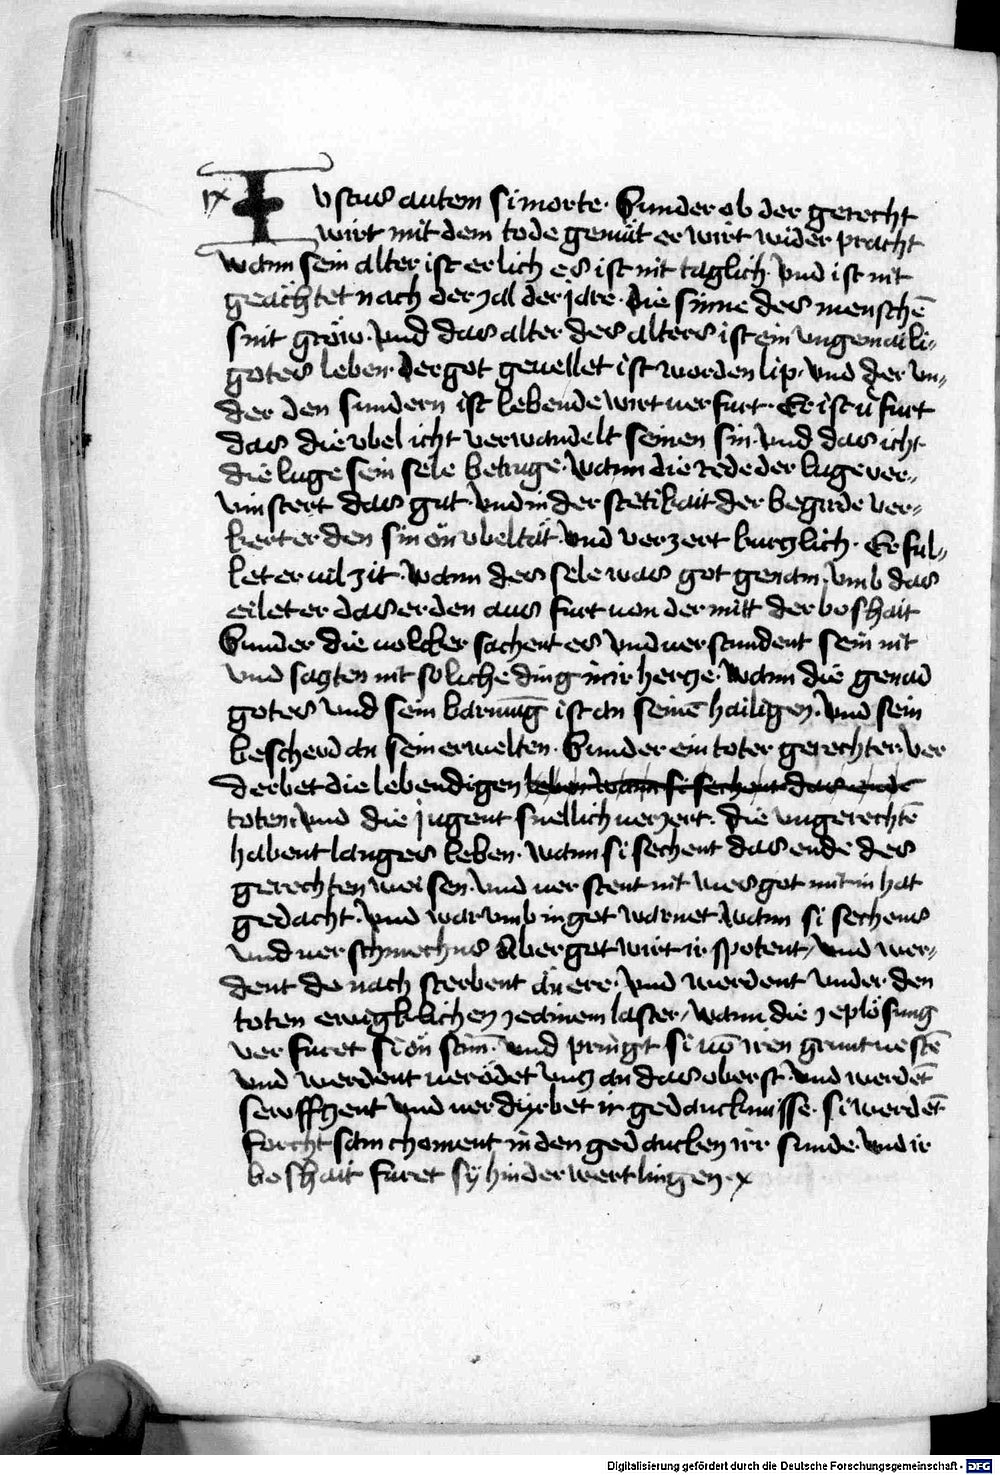 IX Iustus autem si morte. Sunder ob der gerecht
wirt mit dem tode gemut er wirt wider pracht
wann sein alter ist erlich es ist nit taglich. vnd ist nit
geachtet nach der zal der jare. die sinne des menschē
sint graw. vnd das alter des alters ist ein vngemaili-
gotes leben. der got geuellet ist worden lip. vnd der vn-
der den sundern ist lebende wirt uer furt. Er ist ū furt
das die vbel icht verwandelt seinen sin. vnd das icht
die luge sein sele betruge. wann die rede der luge ver-
vinstert das gut. vnd in der stetikait der begirde ver-
kert er den sin ön vbeltät. vnd verzert kurzlich. Er ful-
let er uil zit. wann des sele was got genam. vmb das
eilet er das er den aus furt uon der mitt der boshait
Sunder die uolcker sachent es vnd uerstundent sein nit
vnd sagten nit soliche ding in ir herze. wann die genad
gotes vnd sein barmūg ist an seinē hailigen. vnd sein
bescherd an sein erwelten. Sunder ein toter gerechter. ver
derbet die lebendigen leben wann si sechent das ende
toten. vnd die jugent snellich uerzert. die vngerechtē
habent langes leben. wann si sechent das ende des
gerechten weisen. vnd uerstent nit wes got mit in hat
gedacht. vnd warvmb in got warnet. wann si sechens
vnd uerschmechns Aber got wirt ir spotent, vnd wer-
dent do nach sterbent än ere. vnd werdent vnder den
toten ewigklichen ze ainem laster, wann die zeplösung
verfuret si ön stim. vnd pringt si uō iren gruntuestē
vnd werdent uerödet vnz an das oberst. vnd werdēt
seufftzent vnd uerdyrbet ir gedancknusse. si werdēt
forchtsam choment in den gedancken irr sunde. vnd ir
boshait furet sy hinderwertlingen. x
Digitalisierung gefördert durch die Deutsche Forschungsgemeinschaft - DFG